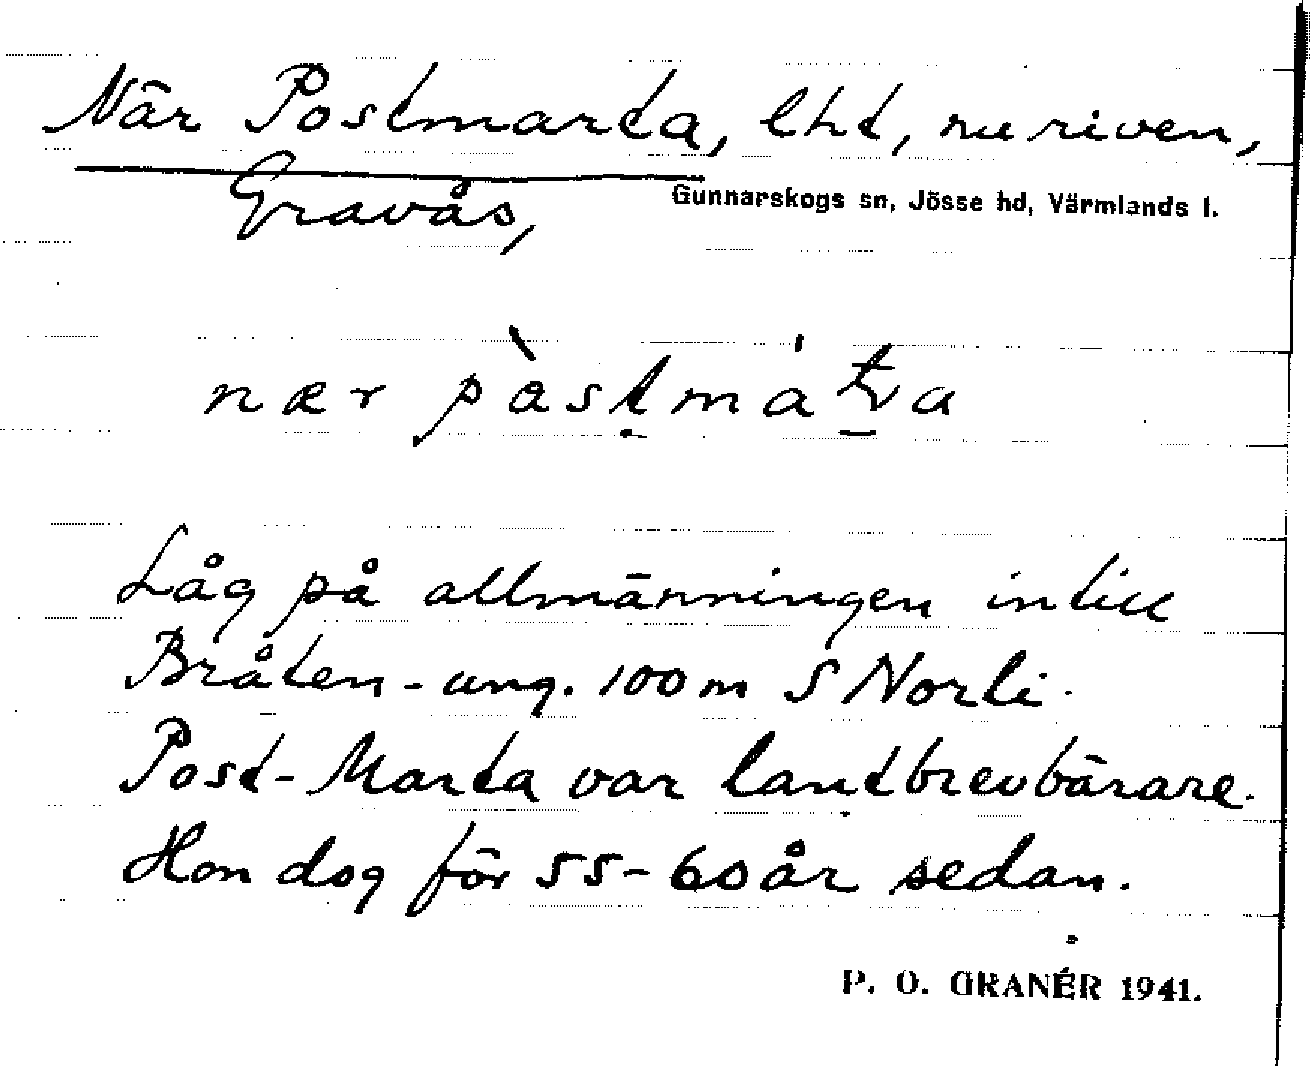 När Postmarta, lht, nu riven,
Gravås,
Gunnarskogs sn, Jösse hd, Värmlands l.
nær
Låg på allmänningen intill
Bråten - ung. 100 m S Norli.
Post-Marta var lantbrevbärare.
Hon dog för 55-60 år sedan.
P. O. GRANÉR 1941.